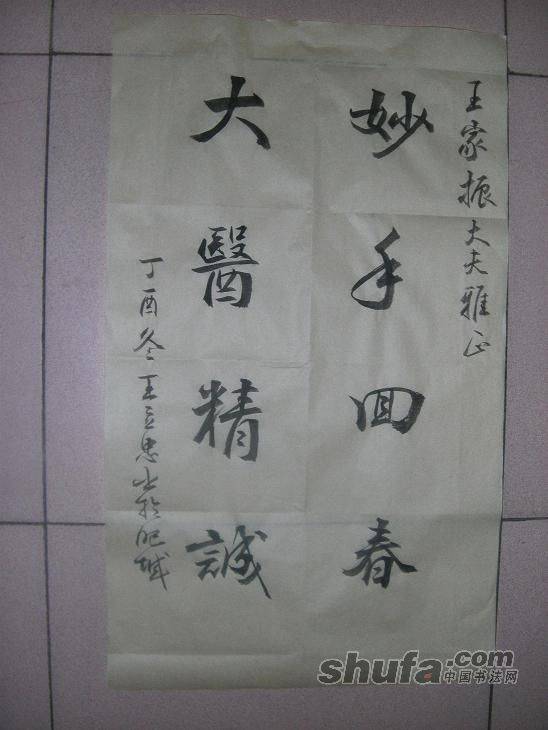 王家振大夫雅正
妙手回春
大醫精誠
丁酉冬王立忠书於肥城
shufa.com
中国书法网